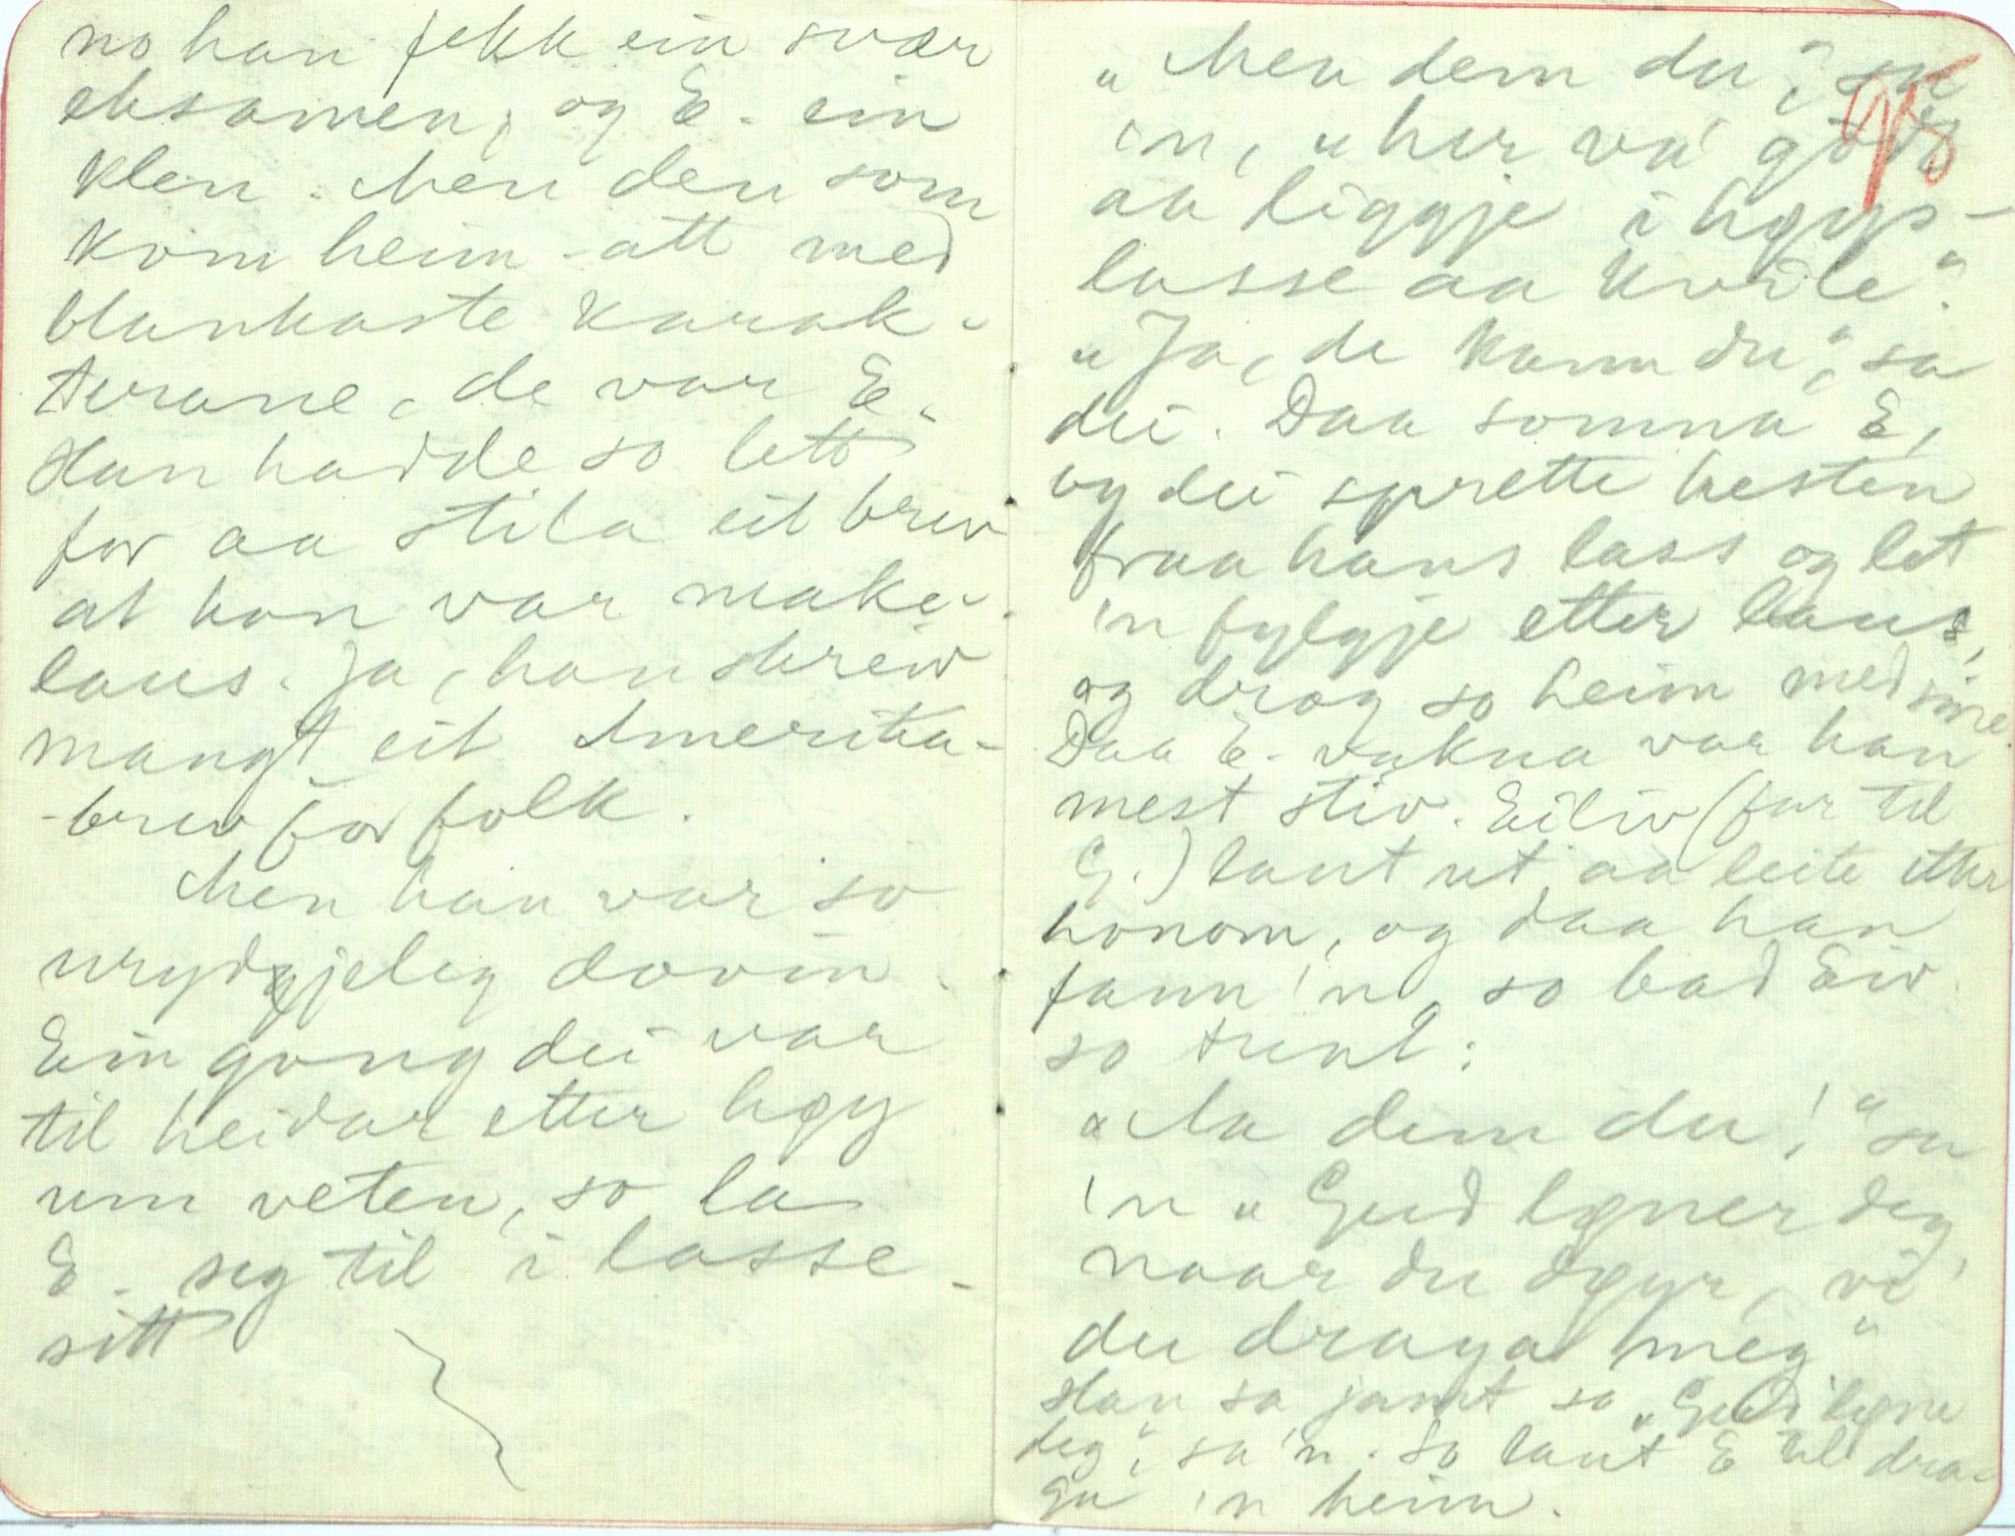 no han fekk ein svær
eksamen, og E. ein
klen. Men den som
kom heim-att med
blankaste karak-
terane, de var E.
Han hadde so lett
for aa stila eit brev
at han var make-
laus. Ja, han skreiv
mangt eit Amerika-
-brev for folk.
Men han var so
urydgjeleg dovin.
Ein gong dei var
til heidar etter høy
um veten, so la
E. seg til i lasse-
sitt
95
"Men dem du," sa
'n, "her va' godt
aa liggje i høys-
lasse aa kvile".
"Ja, de kann du," sa
dei. Daa somna E,
og dei sprette hesten
fraa hans lass og let
'n fylgje etter laus,
og drog so heim med sine.
Daa E. vakna var han
mest stiv. Eiliv (far til
G.) laut ut aa leite etter
honom, og daa han
fann 'n, so bad Eiv.
so trunt:
"Aa dem du!" sa
'n "Gud løner deg,
naar du døyr, vi'
du draga meg"
Han sa jamt so "Gud løne
deg", sa 'n. So laut E til dra-
ga 'n heim.